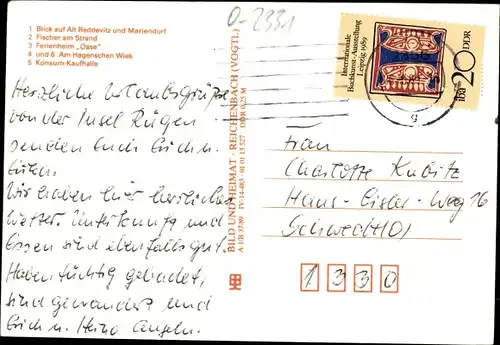 O-2331
1 Blick auf Alt Reddevitz und Mariendorf
2 Fischer am Strand
3 Ferienheim „Oase"
4 und 6 Am Hagenschen Wiek
5 Konsum-Kaufhalle
Herzliche Urlaubsgrüße
von der Insel Rügen
senden Euch Erich u.
Wir haben hier herrliches
Wetter. Unterkunft und
Essen sind ebenfalls gut.
Haben tüchtig gebadet,
sind gewandert und
Erich u. Heino angeln.
BILD UND HEIMAT · REICHENBACH (VOGTL)
A 1/B 37/89 IV-14-483 · 01 01 13 527 DDR 0,25 M
Internationale
Buchkunst-Ausstellung
Leipzig 1989
iba 20 DDR
Frau
Charlotte Kubitz
Hans-Eisler-Weg 16
Schwedt (O)
1 3 3 0